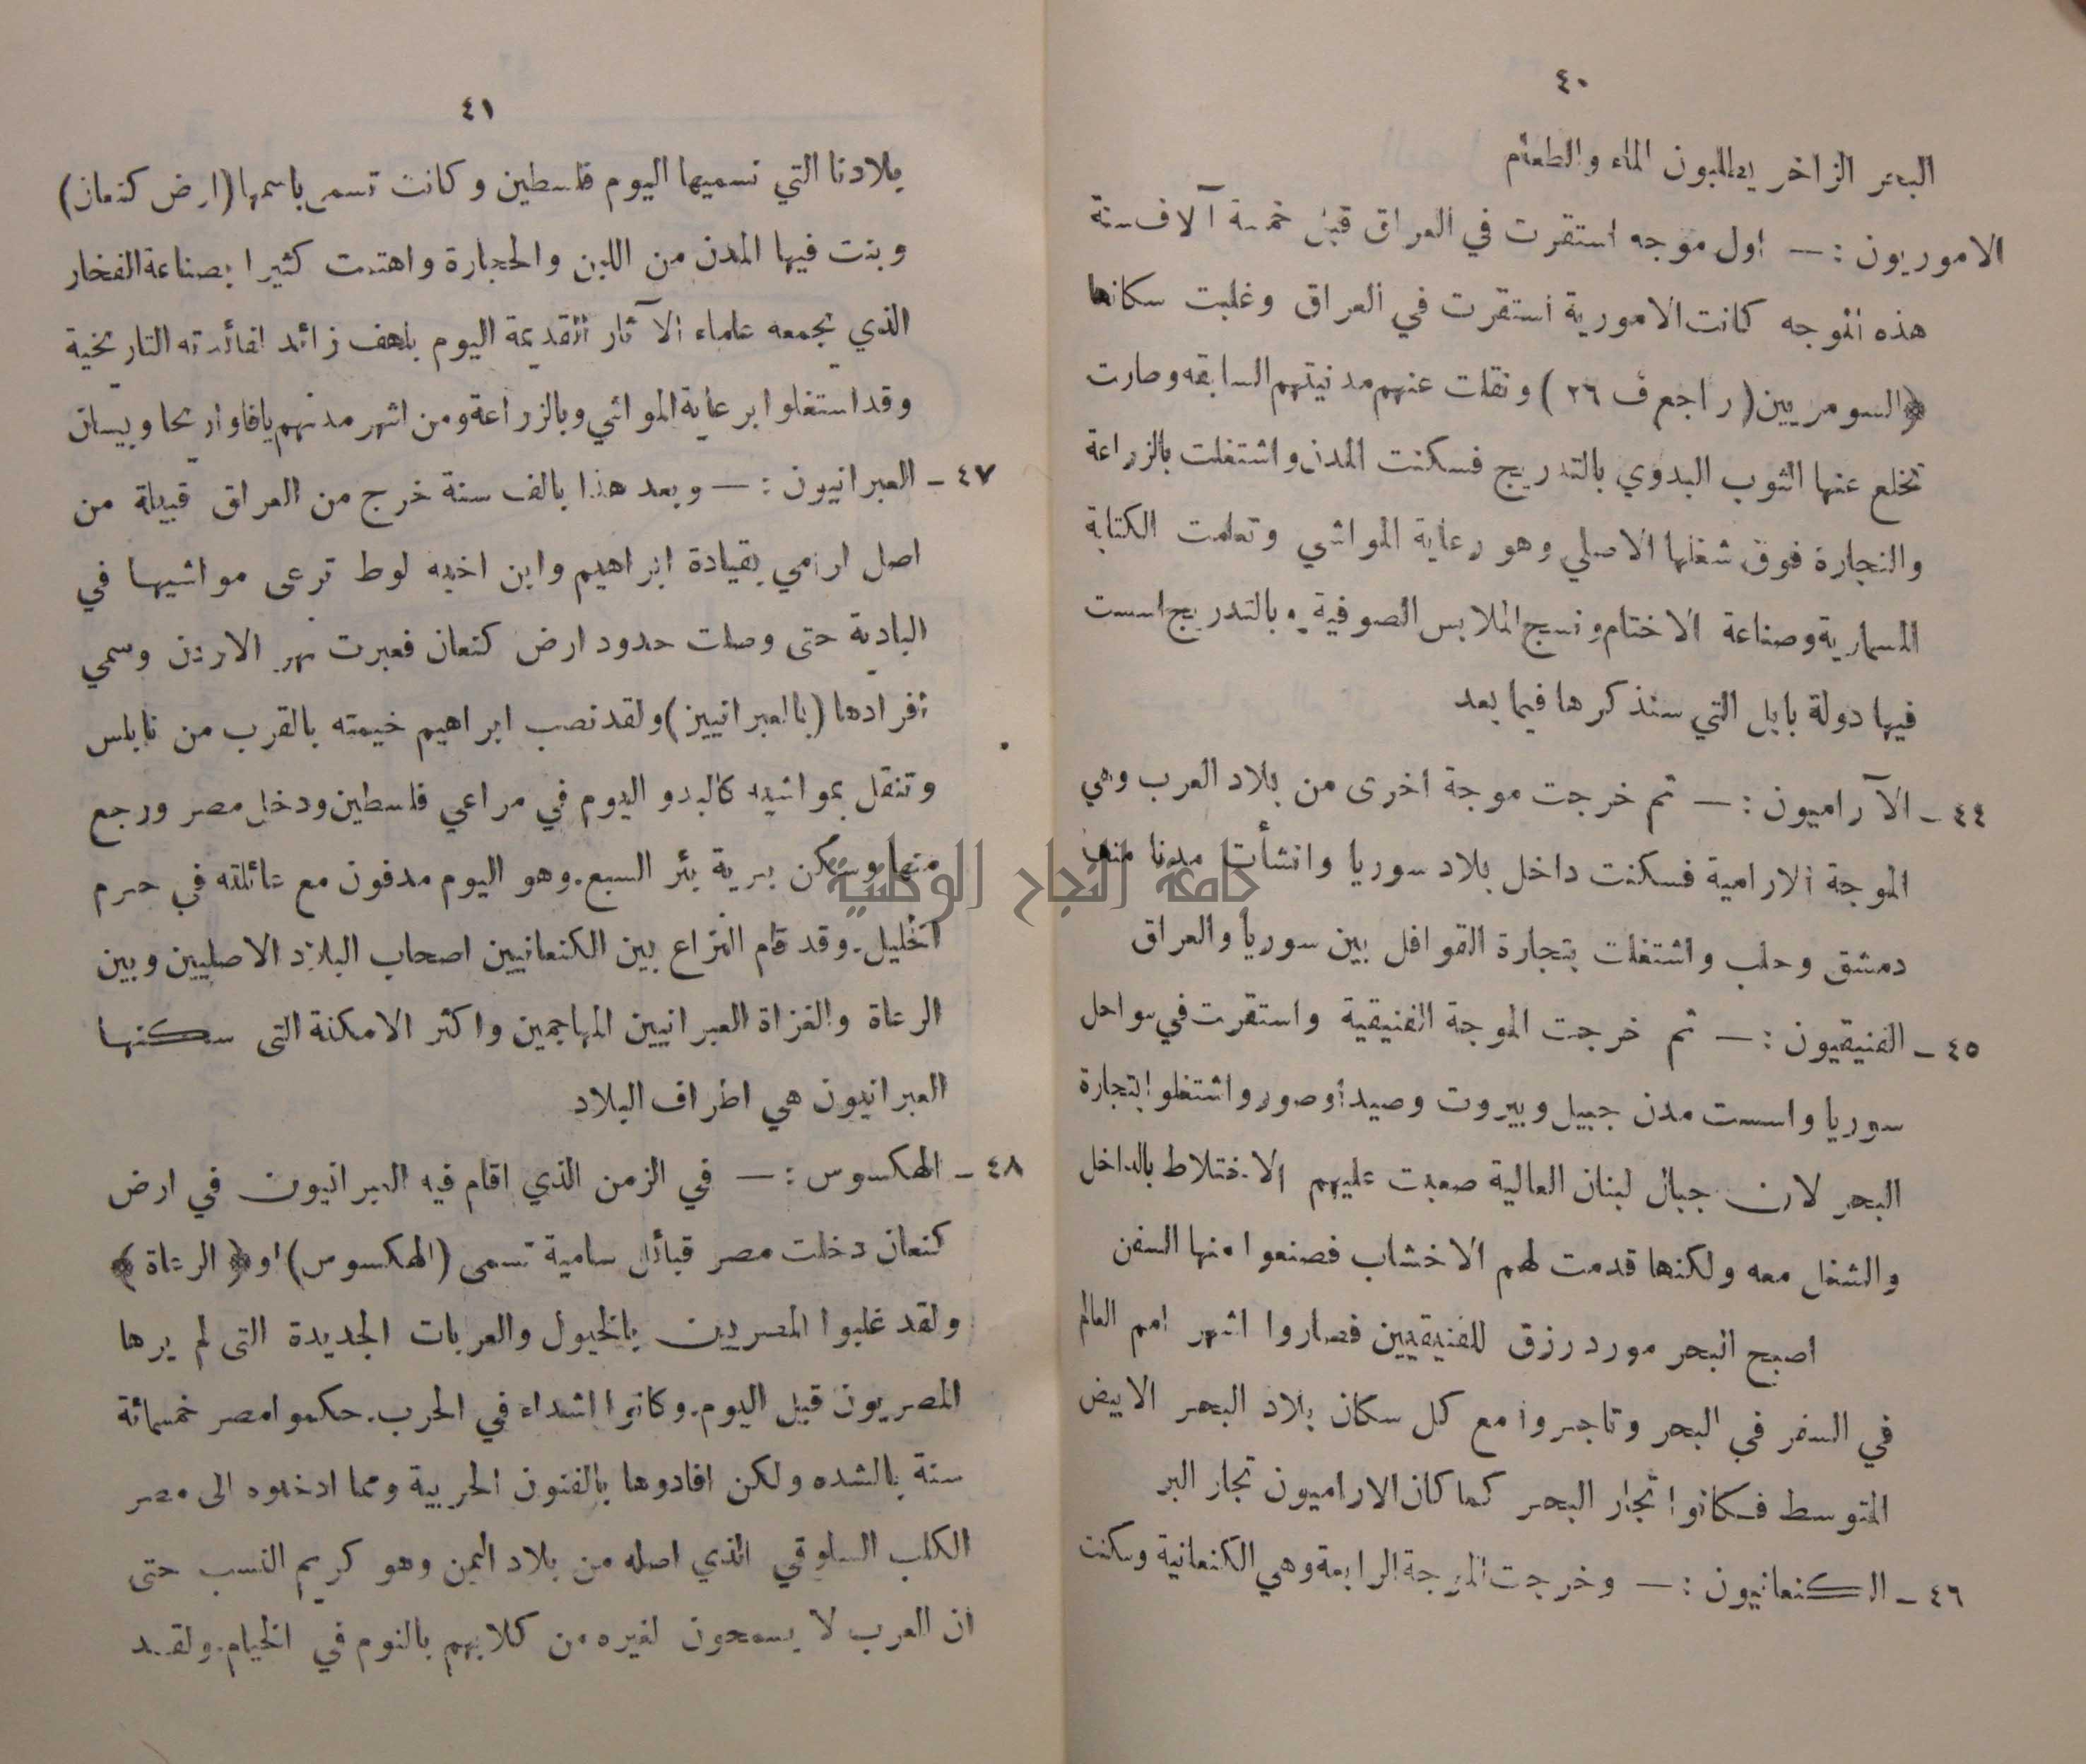 ٤٠
البحر الزاخر يطلبون الماء والطعام
الاموريون : — اول موجه استقرت في العراق قبل خمسة آلاف سنة
هذه الموجه كانت الامورية استقرت في العراق وغلبت سكانها
﴿السومريين (راجع ف ٢٦) ونقلت عنهم مدنيتهم السابقه وصارت
تخلع عنها الثوب البدوي بالتدريج فسكنت المدن واشتغلت بالزراعة
والتجارة فوق شغلها الاصلي وهو رعاية المواشي وتعلمت الكتابة
المسمارية وصناعة الاختام ونسج الملابس الصوفية. وبالتدريج اسست
فيها دولة بابل التي سنذكرها فيما بعد
٤٤ ـ الآراميون : — ثم خرجت موجة اخرى من بلاد العرب وهي
الموجة الارامية فسكنت داخل بلاد سوريا وانشأت مدنا منها
دمشق وحلب واشتغلت بتجارة القوافل بين سوريا والعراق
٤٥ ـ الفنيقيون : — ثم خرجت الموجة الفنيقية واستقرت في سواحل
سوريا واسست مدن جبيل وبيروت وصيدا وصور واشتغلوا بتجارة
البحر لان جبال لبنان العالية صعبت عليهم الاختلاط بالداخل
والشغل معه ولكنها قدمت لهم الاخشاب فصنعوا منها السفن
اصبح البحر مورد رزق للفنيقيين فصاروا اشهر امم العالم
في السفر في البحر وتاجروا مع كل سكان بلاد البحر الابيض
المتوسط فكانوا تجار البحر كما كان الاراميون تجار البر
٤٦ ـ الكنعانيون : — وخرجت الموجة الرابعة وهي الكنعانية وسكنت
٤١
بلادنا التي نسميها اليوم فلسطين وكانت تسمى باسمها (ارض كنعان)
وبنت فيها المدن من اللبن والحجارة واهتمت كثيرا بصناعة الفخار
الذي يجمعه علماء الآثار القديمة اليوم بلهف زائد لفائدته التاريخية
وقد استغلوا برعاية المواشي وبالزراعة ومن اشهر مدنهم يافا واريحا وبيسان
٤٧ ـ العبرانيون : — وبعد هذا بالف سنة خرج من العراق قبيلة من
اصل ارامي بقيادة ابراهيم وابن اخيه لوط ترعى مواشيها في
البادية حتى وصلت حدود ارض كنعان فعبرت نهر الاردن وسمي
افرادها (بالعبرانيين) ولقد نصب ابراهيم خيمته بالقرب من نابلس
وتنقل بمواشيه كالبدو اليوم في مراعي فلسطين ودخل مصر ورجع
منها وسكن برية بئر السبع. وهو اليوم مدفون مع عائلته في حرم
الخليل. وقد قام النزاع بين الكنعانيين اصحاب البلاد الاصليين وبين
الرعاة والغزاة العبرانيين المهاجمين واكثر الامكنة التى سكنها
العبرانيون هي اطراف البلاد
٤٨ ـ الهكسوس : — في الزمن الذي اقام فيه العبرانيون في ارض
كنعان دخلت مصر قبائل سامية تسمى (الهكسوس) او ﴿الرعاة﴾
ولقد غلبوا المصريين بالخيول والعربات الجديدة التى لم يرها
المصريون قبل اليوم. وكانوا اشداء في الحرب. حكموا مصر خمسمائة
سنة بالشده ولكن افادوها بالفنون الحربية ومما ادخلوه الى مصر
الكلب السلوقي الذي اصله من بلاد اليمن وهو كريم النسب حتى
ان العرب لا يسمحون لغيره من كلابهم بالنوم في الخيام. ولقد
جامعة النجاح الوطنية